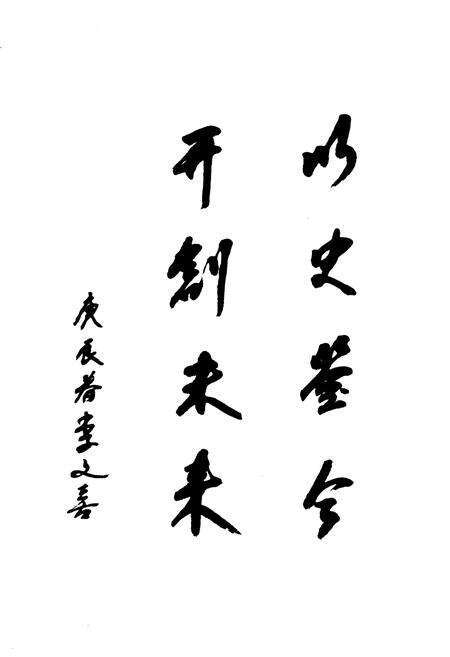 以史鉴今
开創未来
庚辰春李文善